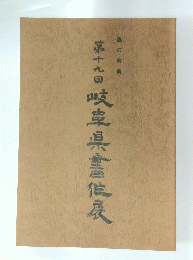 第十九回
岐阜県書作展